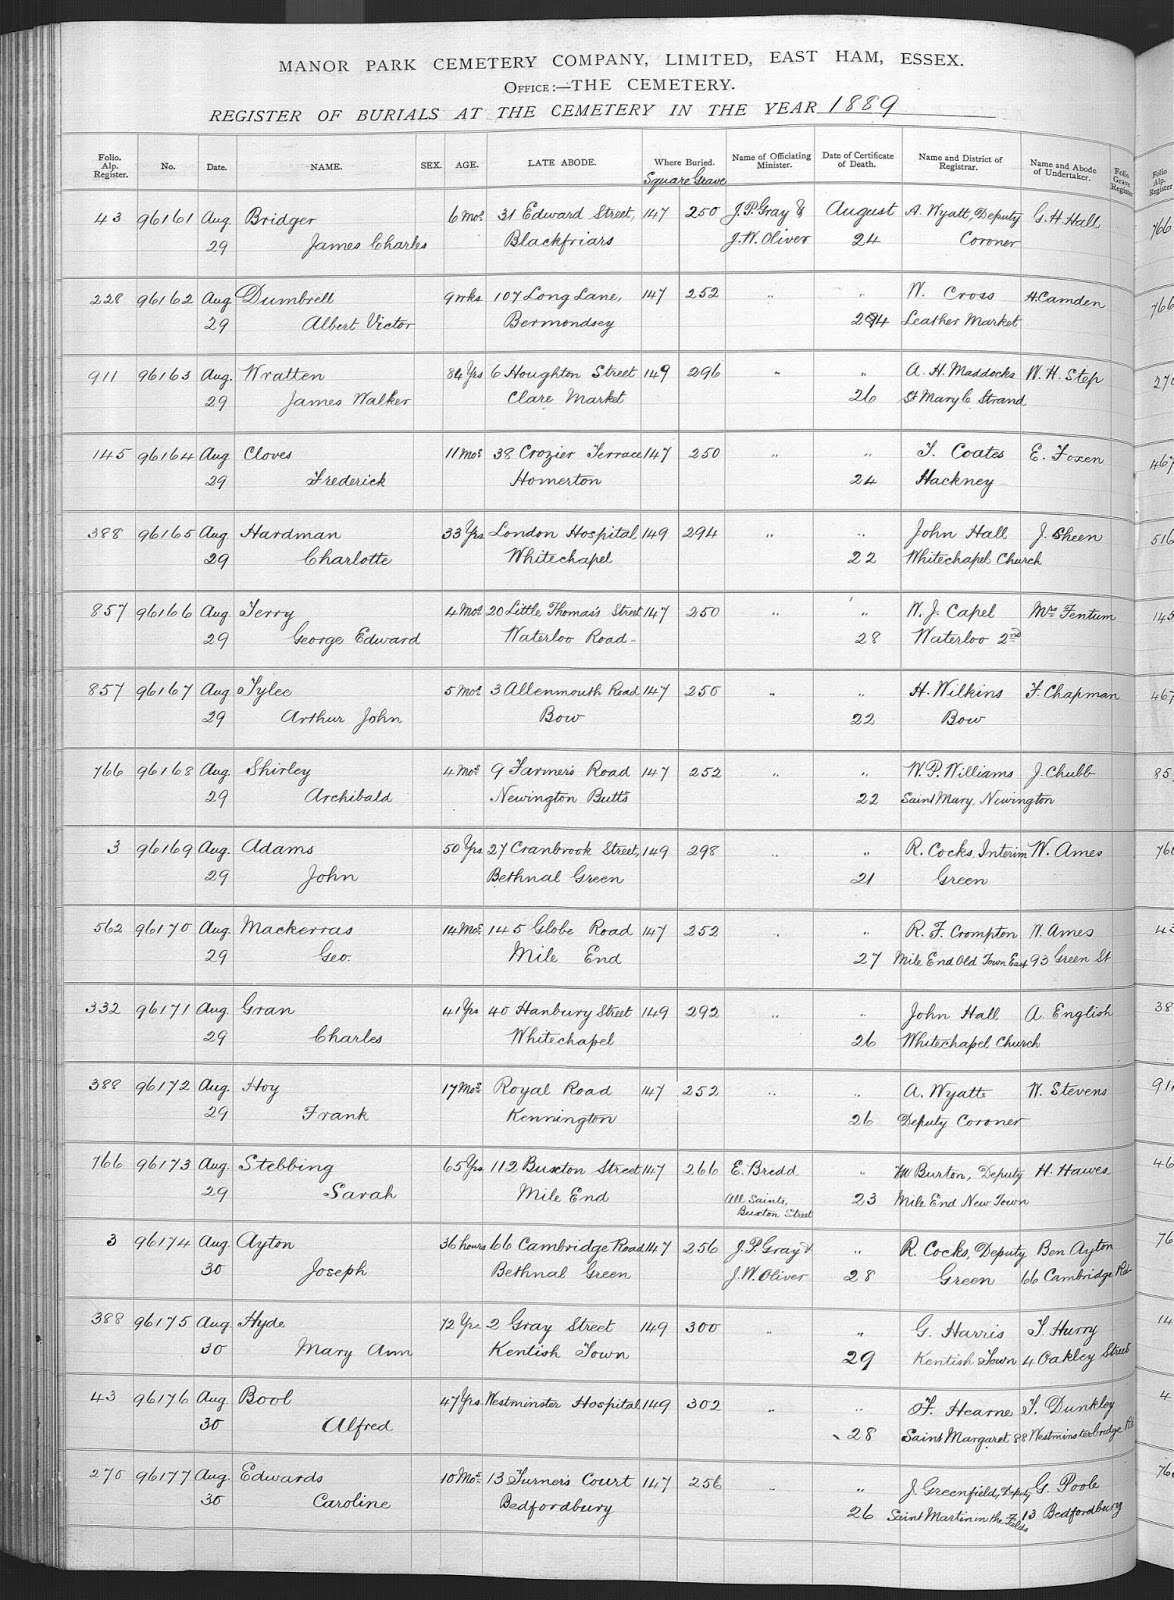 MANOR PARK CEMETERY COMPANY, LIMITED, EAST HAM, ESSEX.
OFFICE:—THE CEMETERY.
REGISTER OF BURIALS AT THE CEMETERY IN THE YEAR 1889
Folio. Alp. Register. No. Date. NAME. SEX. AGE. LATE ABODE. Where Buried. Square Grave Name of Officiating Minister. Date of Certificate of Death. Name and District of Registrar. Name and Abode of Undertaker. Folio Grave Register Folio Alp. Register
43 96161 Aug Bridger 6 Mos 31 Edward Street, 147 250 J.P. Gray & August A. Wyatt, Deputy G. H. Hall
29 James Charles Blackfriars J.W. Oliver 24 Coroner
766
228 96162 Aug Dumbrell 9 wks 107 Long Lane, 147 252 " " W. Cross H. Camden
29 Albert Victor Bermondsey 24 Leather Market
766
911 96163 Aug. Wratten 84 Yrs 6 Houghton Street 149 296 " " A. H. Maddocks W. H. Step
29 James Walker Clare Market 26 St Mary le Strand
270
145 96164 Aug Cloves 11 Mos 38 Crozier Terrace 147 250 " " T. Coates E. Foxen
29 Frederick Homerton 24 Hackney
467
388 96165 Aug Hardman 33 Yrs London Hospital 149 294 " " John Hall J. Sheen
29 Charlotte Whitechapel 22 Whitechapel Church
516
857 96166 Aug Terry 4 Mos 20 Little Thomas's Street 147 250 " " W. J. Capel Mrs Fentum
29 George Edward Waterloo Road 28 Waterloo 2nd
145
857 96167 Aug Tylee 5 Mos 3 Allenmouth Road 147 250 " " H. Wilkins F. Chapman
29 Arthur John Bow 22 Bow
467
766 96168 Aug Shirley 4 Mos 9 Farmers Road 147 252 " " W. P. Williams J. Chubb
29 Archibald Newington Butts 22 Saint Mary, Newington
85
3 96169 Aug. Adams 50 Yrs 27 Cranbrook Street, 149 298 " " R. Cocks, Interim W. Ames
29 John Bethnal Green 21 Green
562 96170 Aug. Mackerras 14 Mos 145 Globe Road 147 252 " " R. F. Crompton W. Ames
29 Geo. Mile End 27 Mile End Old Town East 93 Green St
332 96171 Aug. Gran 41 Yrs 40 Hanbury Street 149 292 " " John Hall A. English
29 Charles Whitechapel 26 Whitechapel Church
38
388 96172 Aug. Hoy 17 Mos Royal Road 147 252 " " A. Wyatt W. Stevens
29 Frank Kennington 26 Deputy Coroner
766 96173 Aug Stebbing 65 Yrs 112 Buxton Street 147 266 E. Bredd " Burton, Deputy H. Hawes
29 Sarah Mile End All Saints, Buxton Street 23 Mile End New Town
46
3 96174 Aug Ayton 36 hours 66 Cambridge Road 147 256 J. P. Gray & " R. Cocks, Deputy Ben Ayton
30 Joseph Bethnal Green J. W. Oliver 28 Green 66 Cambridge Rd
76
388 96175 Aug. Hyde 72 Yrs 2 Gray Street 149 300 " " G. Harris T. Hurry
30 Mary Ann Kentish Town 29 Kentish Town 4 Oakley Street
14
43 96176 Aug Bool 47 Yrs Westminster Hospital 149 302 " " F. Hearne T. Dunkley
30 Alfred 28 Saint Margaret 88 Westminsterbridge Rd
4
270 96177 Aug. Edwards 10 Mos 13 Turner's Court 147 256 " " J. Greenfield, Deputy G. Poole
30 Caroline Bedfordbury 26 Saint Martin in the Fields 13 Bedfordbury
76